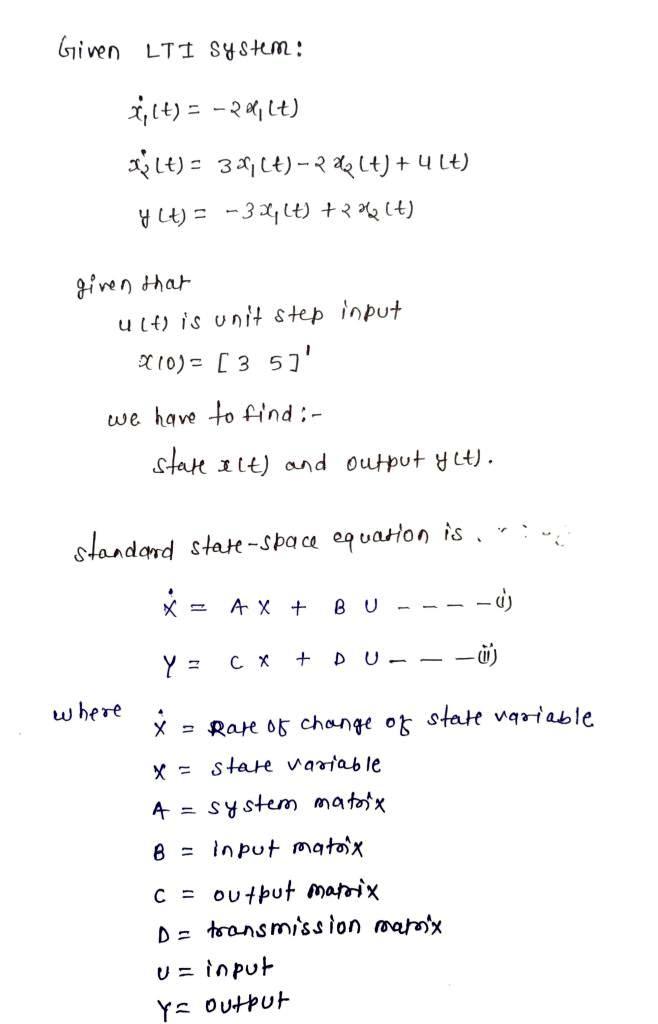 Given LTI system:
ẋ₁(t) = -2x₁(t)
ẋ₂(t) = 3x₁(t) - 2x₂(t) + u(t)
y(t) = -3x₁(t) + 2x₂(t)
given that
u(t) is unit step input
x(0) = [3 5]'
we have to find :-
state x(t) and output y(t).
standard state-space equation is
Ẋ = A X + B U - - - - (i)
Y = C X + D U - - - (ii)
where Ẋ = Rate of change of state variable
X = state variable
A = system matrix
B = input matrix
C = output matrix
D = transmission matrix
U = input
Y = output